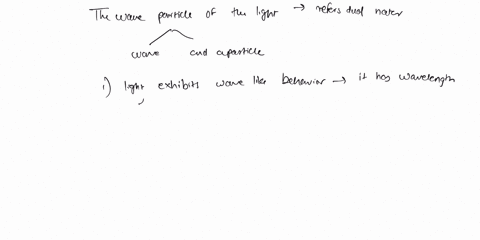 The wave particle of the light → refers dual nater
wave and a particle
1) light, exhibits wave like behavior → it has wavelength